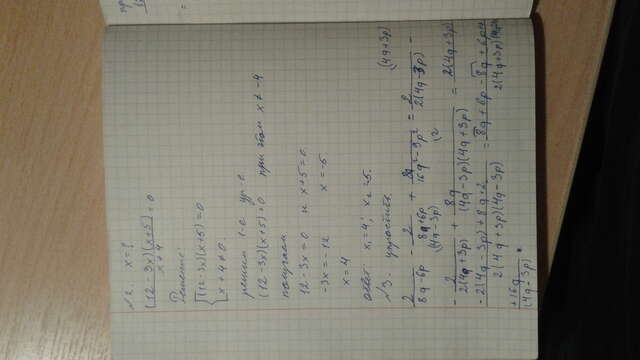 №2. x=?
(12-3x)(x+5)/(x+4) = 0
Решение:
{ (12-3x)(x+5)=0
x+4≠0.
решим 1-е ур-е
(12-3x)(x+5)=0 при этом x≠-4
получаем
12-3x=0 и x+5=0
-3x=-12 x=-5
x=4
ответ: x₁=4; x₂=-5.
№3. упростить
2/(8q-6p) - 2/(8q+6p) + 8q/(16q²-9p²) = 2/(2(4q-3p)) (4q+3p) -
- 2/(2(4q+3p)) (4q-3p) + 8q/((4q-3p)(4q+3p)) (2 = 2(4q+3p)
-2(4q-3p)+8q·2/(2(4q+3p)(4q-3p)) = 8q+6p-8q+6p+/2(4q+3p)
+16q/(4q-3p)